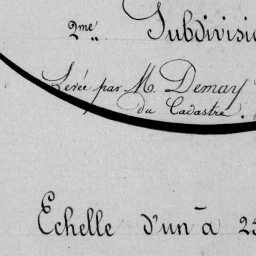 2me Subdivisi
Levée par M. Demay
du Cadastre.
Echelle d'un à 25